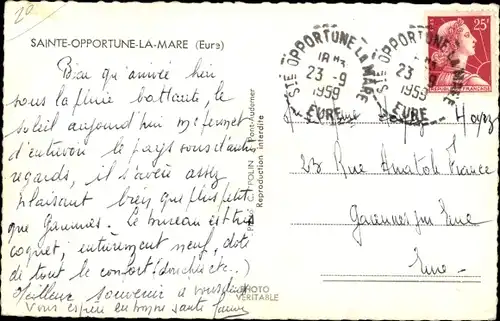 20
SAINTE-OPPORTUNE-LA-MARE (Eure)
Bien qu'arrivée hier,
sous la pluie battante, le
soleil aujourd'hui m'permet
d'entrevoir le pays sous d'autres
regards, il s'avère assez
plaisant bien que plus petit
que Le bureau est très
coquet, entièrement neuf, doté
de tout le confort (douche etc..)
Meilleur souvenir à tous
Vous espère en bonne santé
Pont-Audemer
Reproduction interdite
PHOTO
VÉRITABLE
STE OPPORTUNE LA MARE
18 H
23 -9
1959
EURE
STE OPPORTUNE LA MARE
23 -9
1959
EURE
25F
23 Rue Anatole France
Eure